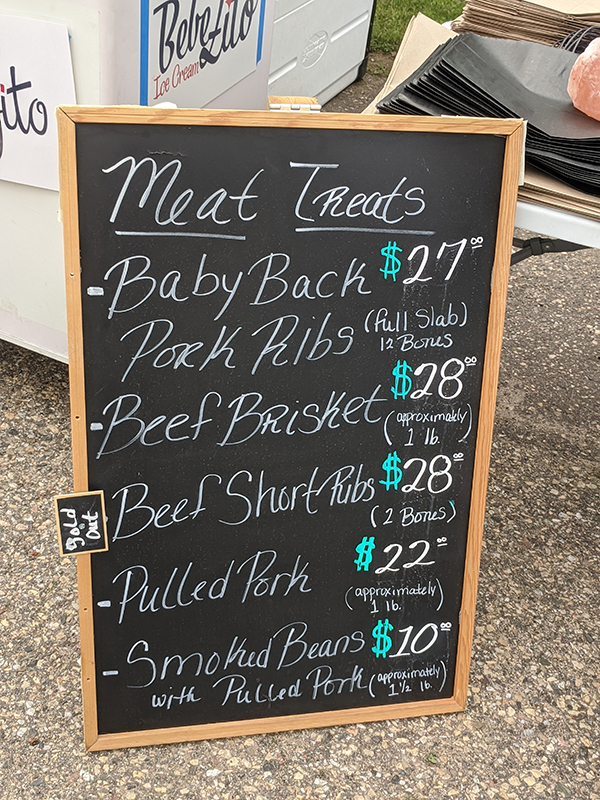 BebeZito
Ice Cream
ito
Meat Treats
- Baby Back $27.00
Pork Ribs (full Slab)
12 Bones
- Beef Brisket $28.00
(approximately
1 lb.)
Sold
Out
Beef Short Ribs $28.00
(2 Bones)
- Pulled Pork $22.00
(approximately
1 lb.)
- Smoked Beans $10.00
with Pulled Pork (approximately
1 1/2 lb.)